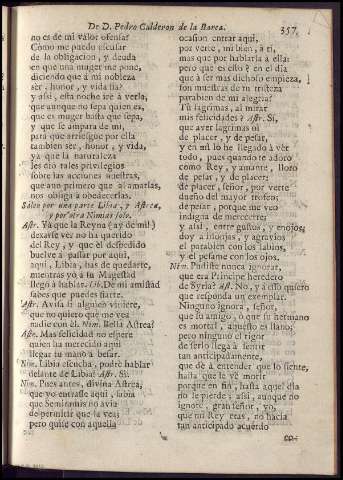 De D. Pedro Calderon de la Barca. 357
no es de mi valor ofensa?
Còmo me puedo escusar
de la obligacion, y deuda
en que una muger me pone,
diciendo que à mi nobleza
ser, honor, y vida fia?
y assi, esta noche irè à verla,
que aunque no sepa quien es,
que es muger basta que sepa,
y que se ampara de mi,
para que arriesgue por ella
tambien ser, honor, y vida,
ya que la naturaleza
les diò tales privilegios
sobre las acciones nuestras,
que aun primero que al amarlas,
nos obliga à obedecerlas.
Salen por una parte Libia, y Astrea,
y por otra Nimias solo.
Astr. Ya que la Reyna (ay de mi!)
dexarse vèr no ha querido
del Rey, y que èl despedido
buelve à passar por aqui,
aqui, Libia, has de quedarte,
mientras yo à su Magestad
llego à hablar. Lib. De mi amistad
sabes que puedes fiarte.
Astr. Avisa si alguien viniere,
que no quiero que me vea
nadie con èl. Nim. Bella Astrea?
Astr. Mas felicidad no espere
quien ha merecido aqui
llegar tu mano à besar.
Nim. Libia escucha, podrè hablar
delante de Libia? Astr. Sì.
Nim. Pues antes, divina Astrea,
que yo entrasse aqui, sabia
que Semiramis no avia
de permitir que la vea;
pero quise con aquella
ocasion entrar aqui,
por verte, mi bien, à ti,
mas que por hablarla à ella:
pero que es esto? en el dia
que à ser mas dichoso empieza,
son muestras de tu tristeza
parabien de mi alegria?
Tù lagrimas, al mirar
mis felicidades? Astr. Sì,
que ayer lagrimas oì
de placer, y de pesar,
y en mi lo he llegado à vèr
todo, pues quando te adoro
como Rey, y amante, lloro
de pesar, y de placer;
de placer, señor, por verte
dueño del mayor trofeo;
de pesar, porque me veo
indigna de merecerte;
y assi, entre gustos, y enojos,
doy à lisonjas, y agravios
el parabien con los labios,
y el pesame con los ojos.
Nim. Pudiste nunca ignorar,
que era Principe heredero
de Syria? Ast. No, y à esso quiero
que responda un exemplar.
Ninguno ignora, señor,
que su amigo, ò que su hermano
es mortal, aquesto es llano;
pero ninguno el rigor
de serlo llega à sentir
tan anticipadamente,
que dè à entender que lo siente,
hasta que le vè morir:
porque en fin, hasta aquel dia
no le pierde; assi, aunque no
ignorè, gran señor, yo,
que mi Rey eras, no hacia
tan anticipado acuerdo